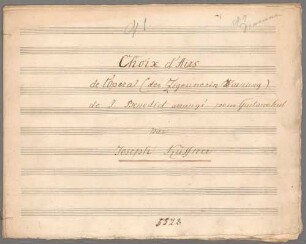 Choix d'Airs
de l'Opéra (der Zigeunerin Warnung)
de J. Benedict arrangé pour Guitarre seul
par
Joseph Küffner
5528